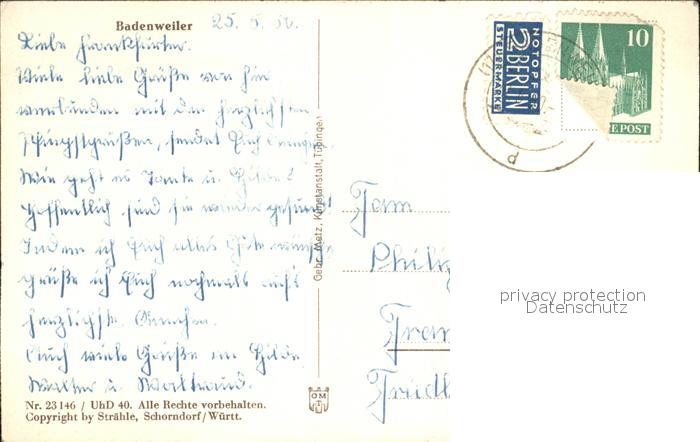 Badenweiler 25. 5. 50.
Liebe Frankfurter.
Viele liebe Grüße von hier
verbunden mit den herzlichsten
Pfingstgrüßen, sendet Euch
Wie geht es Tante u. Hilde?
Hoffentlich sind sie wieder gesund!
Indem ich Euch alles Gute wünsche
grüße ich Euch nochmals aufs
herzlichste.
Auch viele Grüße an Hilde
Walter u. Waltraud.
Nr. 23146 / UhD 40. Alle Rechte vorbehalten.
Copyright by Strähle, Schorndorf/Württ.
Gebr. Metz, Kunstanstalt, Tübingen
OM
NOTOPFER
2 BERLIN
STEUERMARKE
10
EPOST
d
Fam
Philip
Fran
Friedb
privacy protection
Datenschutz